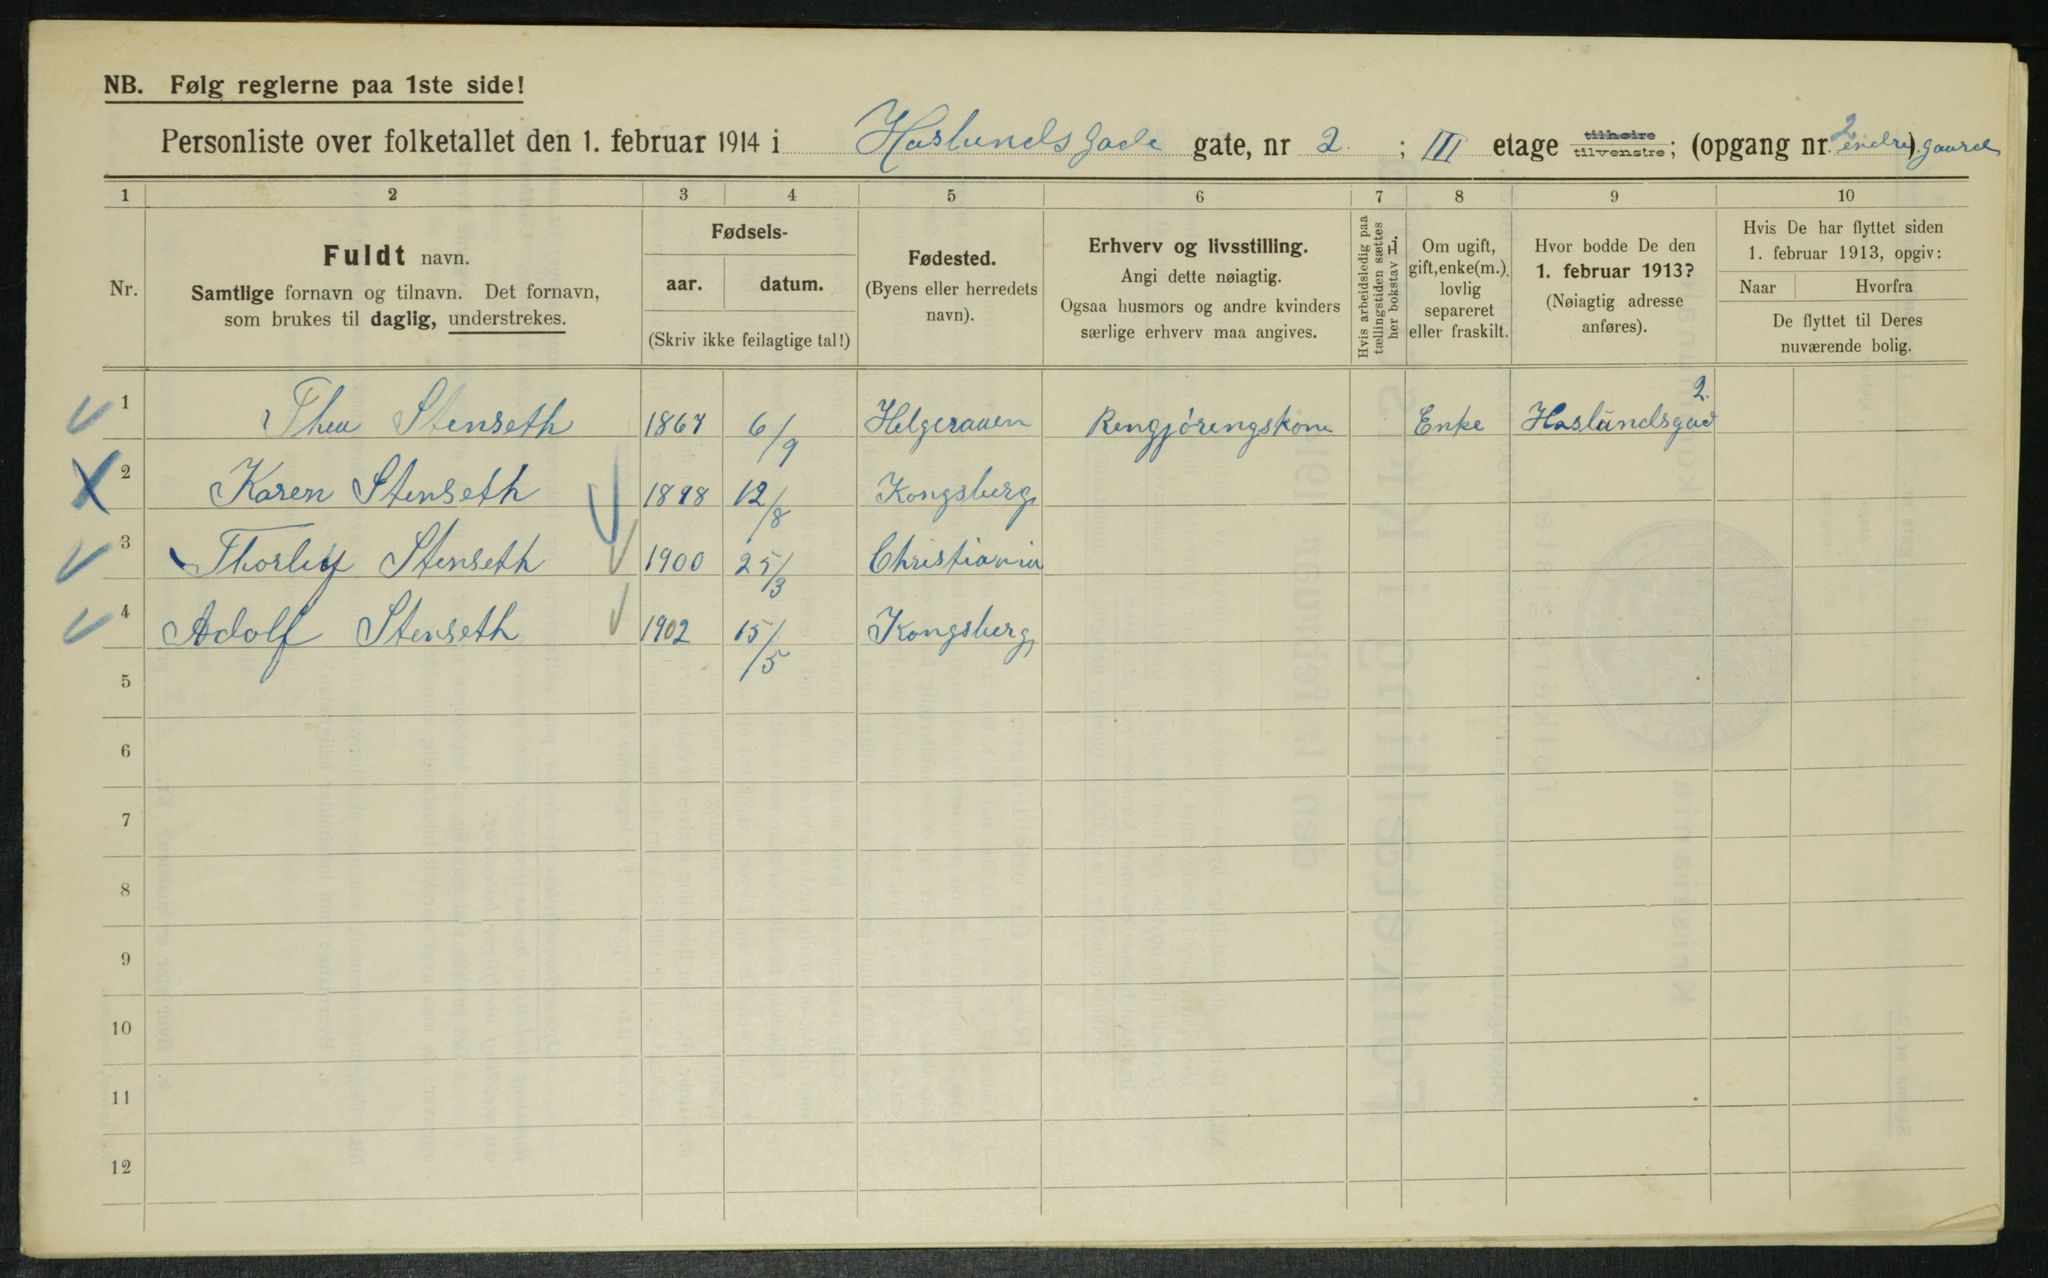 NB. Følg reglerne paa 1ste side!
Personliste over folketallet den 1. februar 1914 i Haslundsgade gate, nr 2. ; III etage tilhøire tilvenstre; (opgang nr. 2 indre) gaard
1 2 3 4 5 6 7 8 9 10
Nr.
Fuldt navn.
Samtlige fornavn og tilnavn. Det fornavn,
som brukes til daglig, understrekes.
Fødsels-
aar. datum.
(Skriv ikke feilagtige tal!)
Fødested.
(Byens eller herredets
navn).
Erhverv og livsstilling.
Angi dette nøiagtig.
Ogsaa husmors og andre kvinders
særlige erhverv maa angives.
Hvis arbeidsledig paa
tællingstiden sættes
her bokstav L.
Om ugift,
gift, enke(m.),
lovlig
separeret
eller fraskilt.
Hvor bodde De den
1. februar 1913?
(Nøiagtig adresse
anføres).
Hvis De har flyttet siden
1. februar 1913, opgiv:
Naar Hvorfra
De flyttet til Deres
nuværende bolig.
1 Thea Stenseth 1867 6/9 Helgeraaen Rengjöringskone Enke Haslundsgad 2.
2 Karen Stenseth 1898 12/8 Kongsberg
3 Thorleif Stenseth 1900 25/3 Christiania
4 Adolf Stenseth 1902 15/5 Kongsberg
5
6
7
8
9
10
11
12